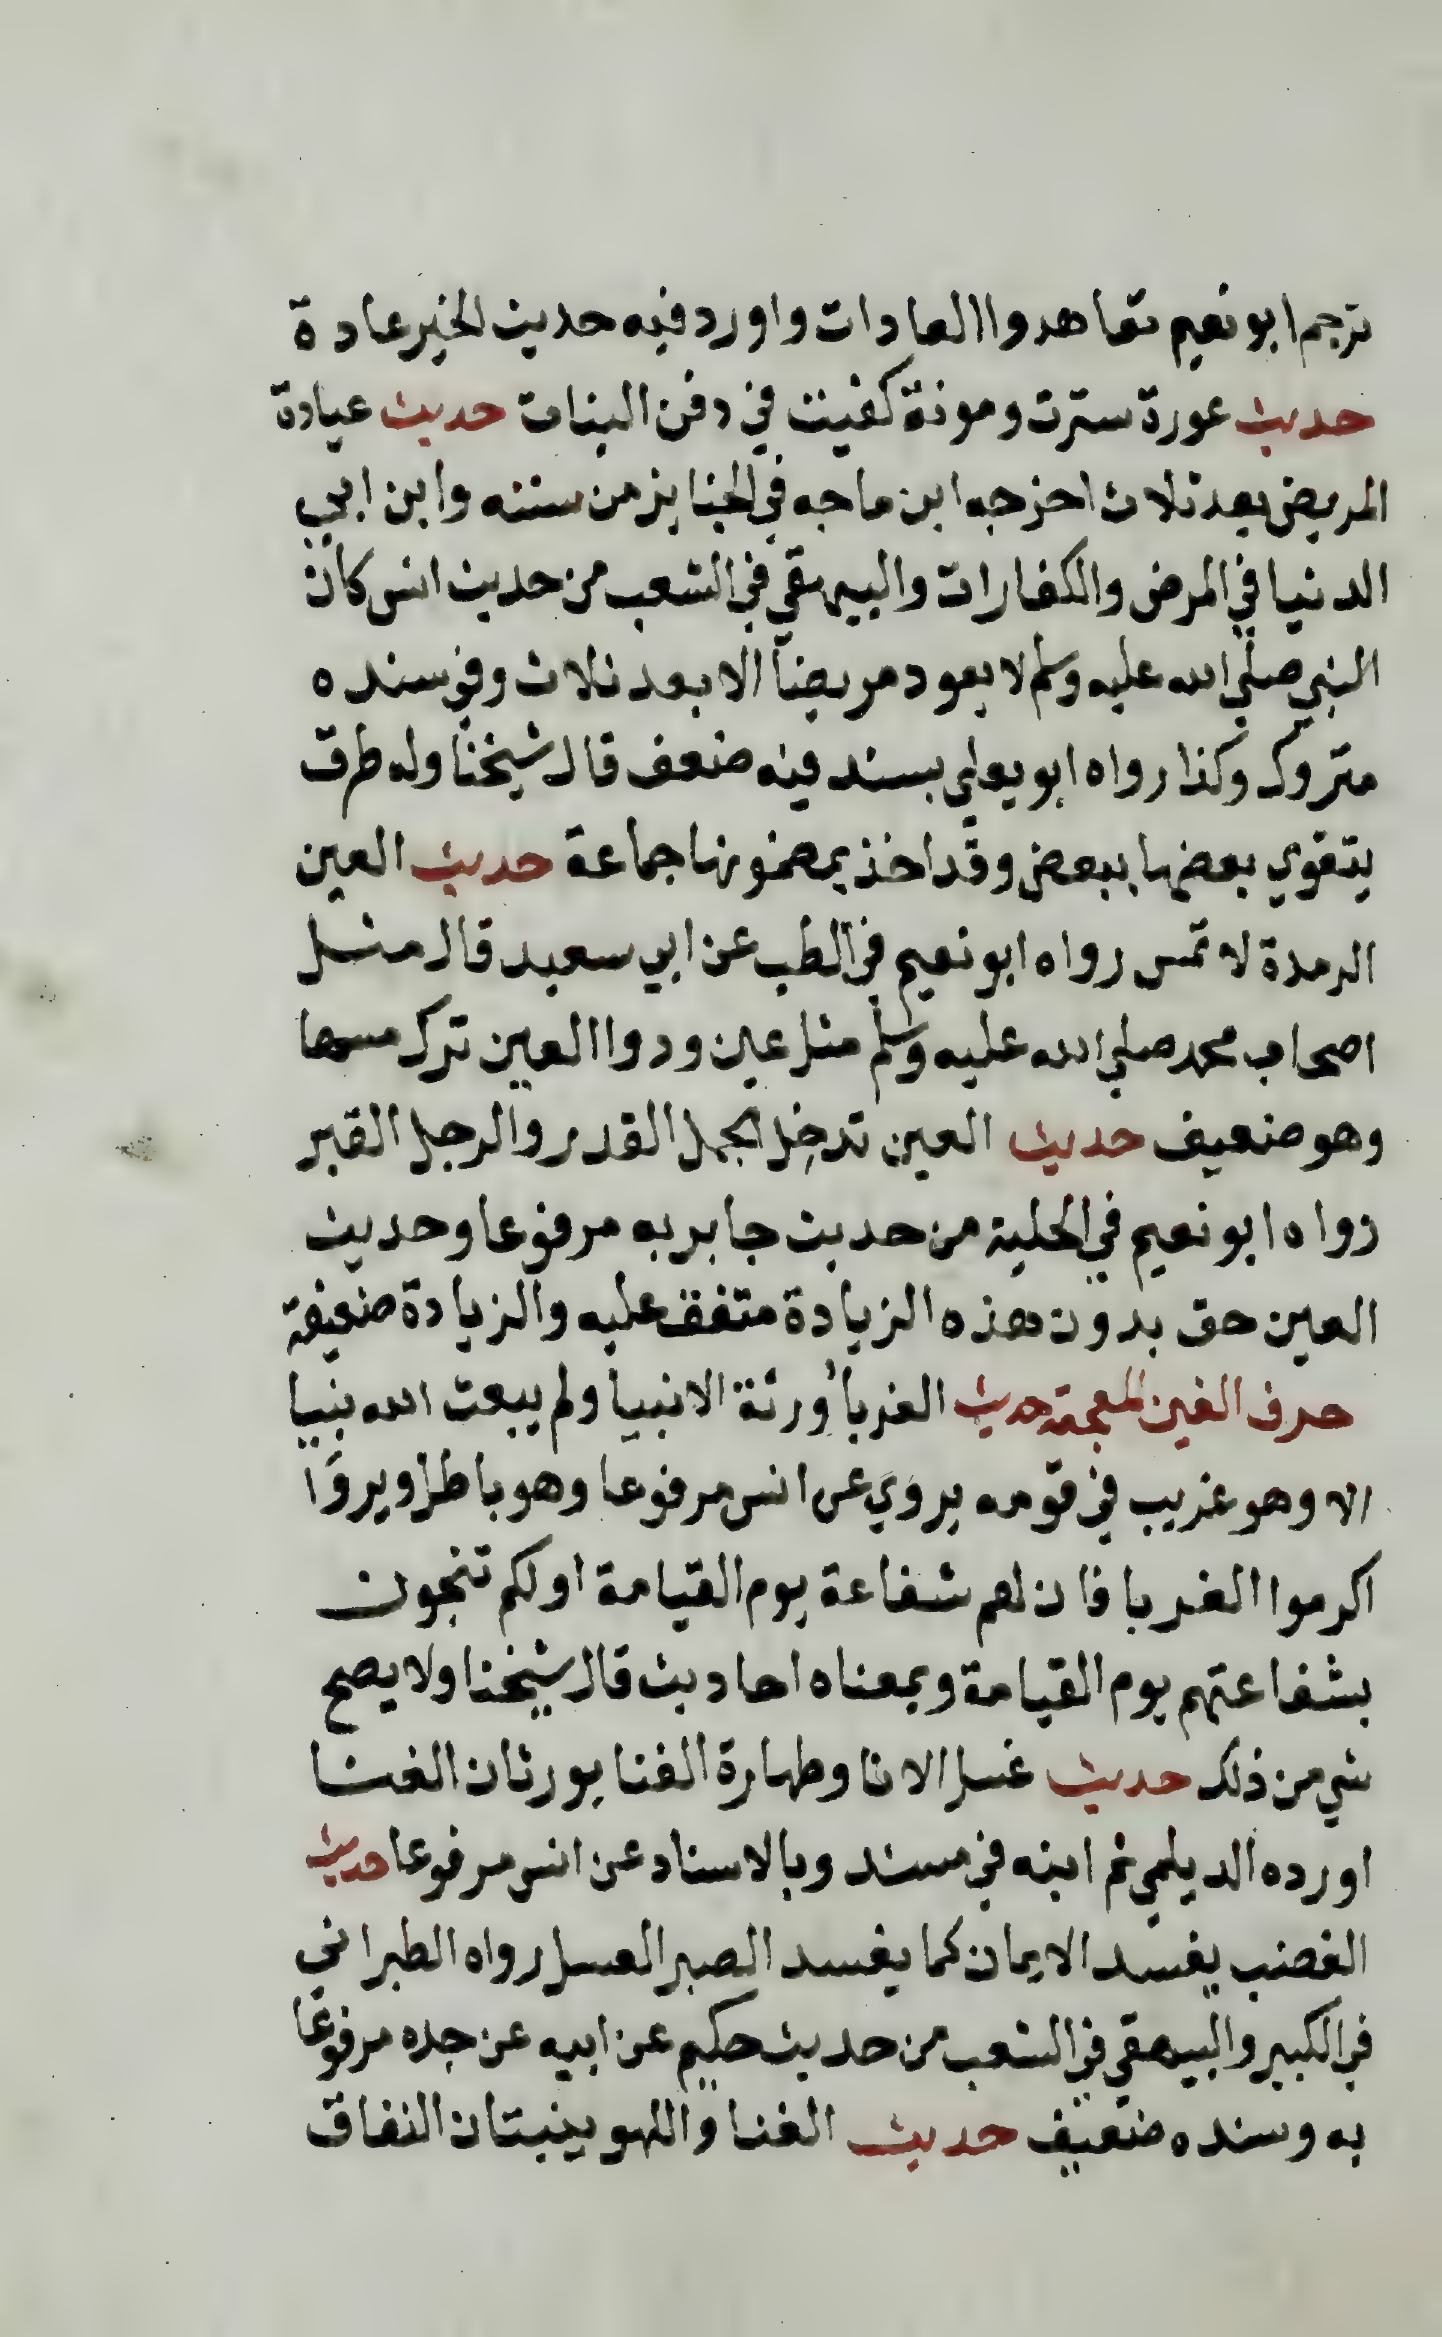 ترجم ابو نعيم تعاهدوا العادات واورد فيه حديث الخير عادة
حديث عورة سترت ومونة كفيت في دفن البنات حديث عيادة
المريض بعد ثلاث اخرجه ابن ماجه في الجنايز من سننه وابن ابي
الدنيا في المرض والكفارات والبيهقي في الشعب من حديث انس كان
النبي صلي الله عليه وسلم لا يعود مريضا الا بعد ثلاث وفي سنده
متروك وكذا رواه ابو يعلي بسند فيه ضعف قال شيخنا وله طرق
يتقوي بعضها ببعض وقد اخذ بمضمونها جماعة حديث العين
الرمدة لا تمس رواه ابو نعيم في الطب عن ابي سعيد قال مثل
اصحاب محمد صلي الله عليه وسلم مثل عين ودوا العين ترك مسها
وهو ضعيف حديث العين تدخل الجمل القدر والرجل القبر
رواه ابو نعيم في الحلية من حديث جابر به مرفوعا وحديث
العين حق بدون هذه الزيادة متفق عليه والزيادة ضعيفة
حرف الغين المعجمة حديث الغربا ورثة الانبيا ولم يبعث الله نبيا
الا وهو غريب في قومه يروي عن انس مرفوعا وهو باطل ويروا
اكرموا الغربا فان لهم شفاعة يوم القيامة اولكم تنجون
بشفاعتهم يوم القيامة وبمعناه احاديث قال شيخنا ولا يصح
شي من ذلك حديث غسل الانا وطهارة الفنا يورثان الغنا
اورده الديلمي ثم ابنه في مسند وبالاسناد عن انس مرفوعا حديث
الغضب يفسد الايمان كما يفسد الصبر العسل رواه الطبراني
في الكبير والبيهقي في الشعب من حديث حكيم عن ابيه عن جده مرفوعا
به وسنده ضعيف حديث الغنا واللهو ينبتان النفاق